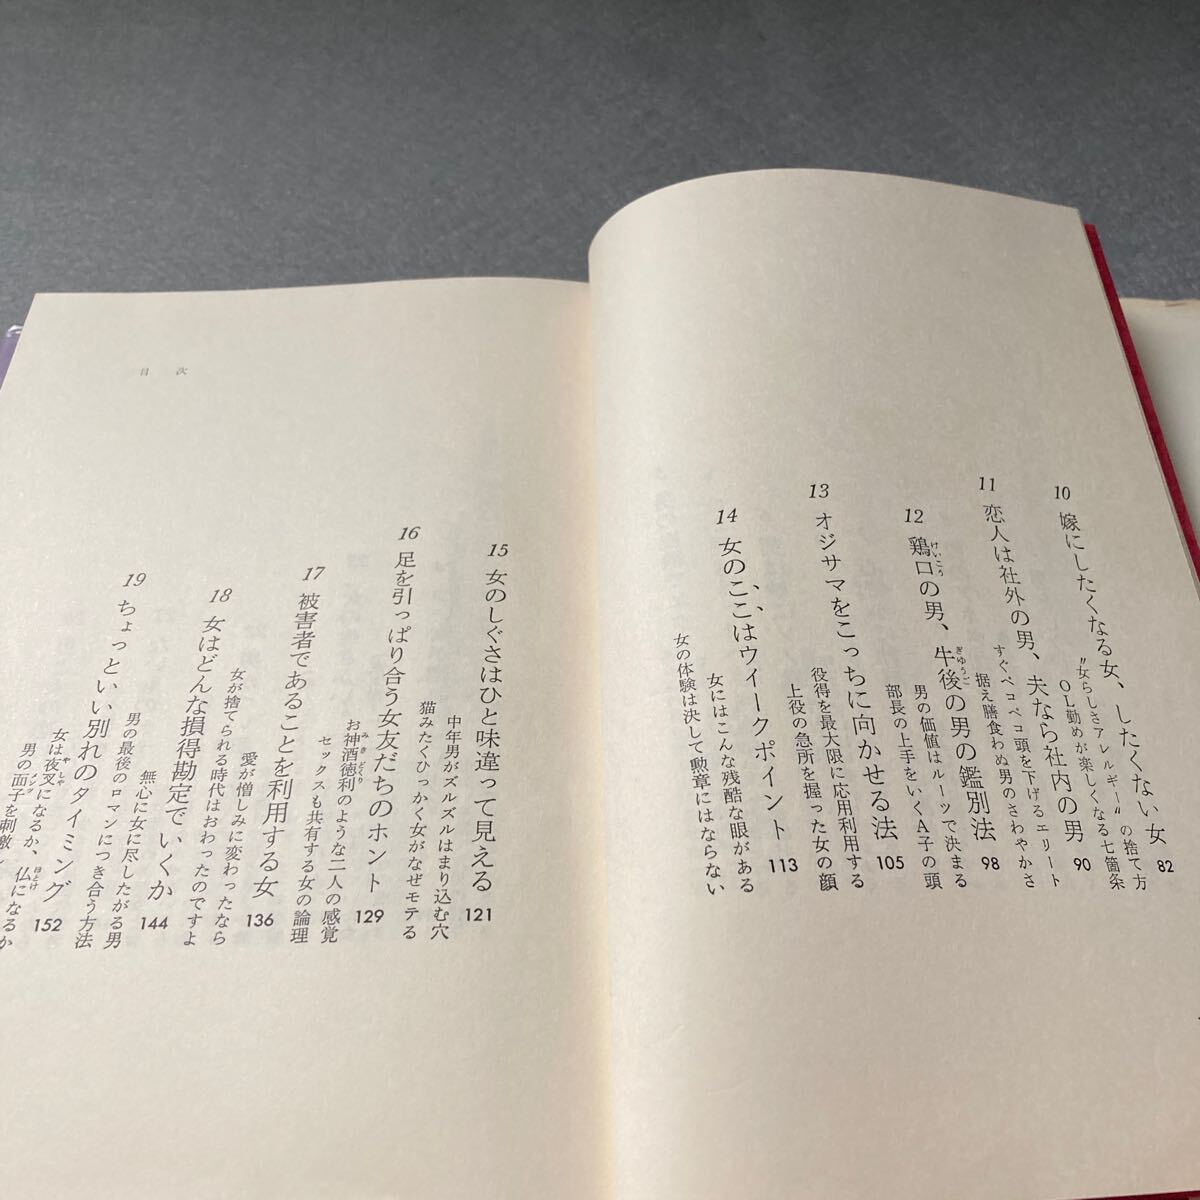 10 嫁にしたくなる女、したくない女 82
“女らしさアレルギー”の捨て方
OL勤めが楽しくなる七箇条
11 恋人は社外の男、夫なら社内の男 90
すぐペコペコ頭を下げるエリート
据え膳食わぬ男のさわやかさ
12 鶏口の男、牛後の男の鑑別法 98
男の価値はルーツで決まる
部長の上手をいくA子の頭
13 オジサマをこっちに向かせる法 105
役得を最大限に応用利用する
上役の急所を握った女の顔
14 女のここはウィークポイント 113
女にはこんな残酷な眼がある
女の体験は決して勲章にはならない
目次
15 女のしぐさはひと味違って見える 121
中年男がズルズルはまり込む穴
猫みたくひっかく女がなぜモテる
16 足を引っぱり合う女友だちのホント 129
お神酒徳利のような二人の感覚
セックスも共有する女の論理
17 被害者であることを利用する女 136
愛が憎しみに変わったなら
女が捨てられる時代はおわったのですよ
18 女はどんな損得勘定でいくか 144
無心に女に尽したがる男
男の最後のロマンにつき合う方法
19 ちょっといい別れのタイミング 152
女は夜叉になるか、仏になるか
男の面子を刺激し